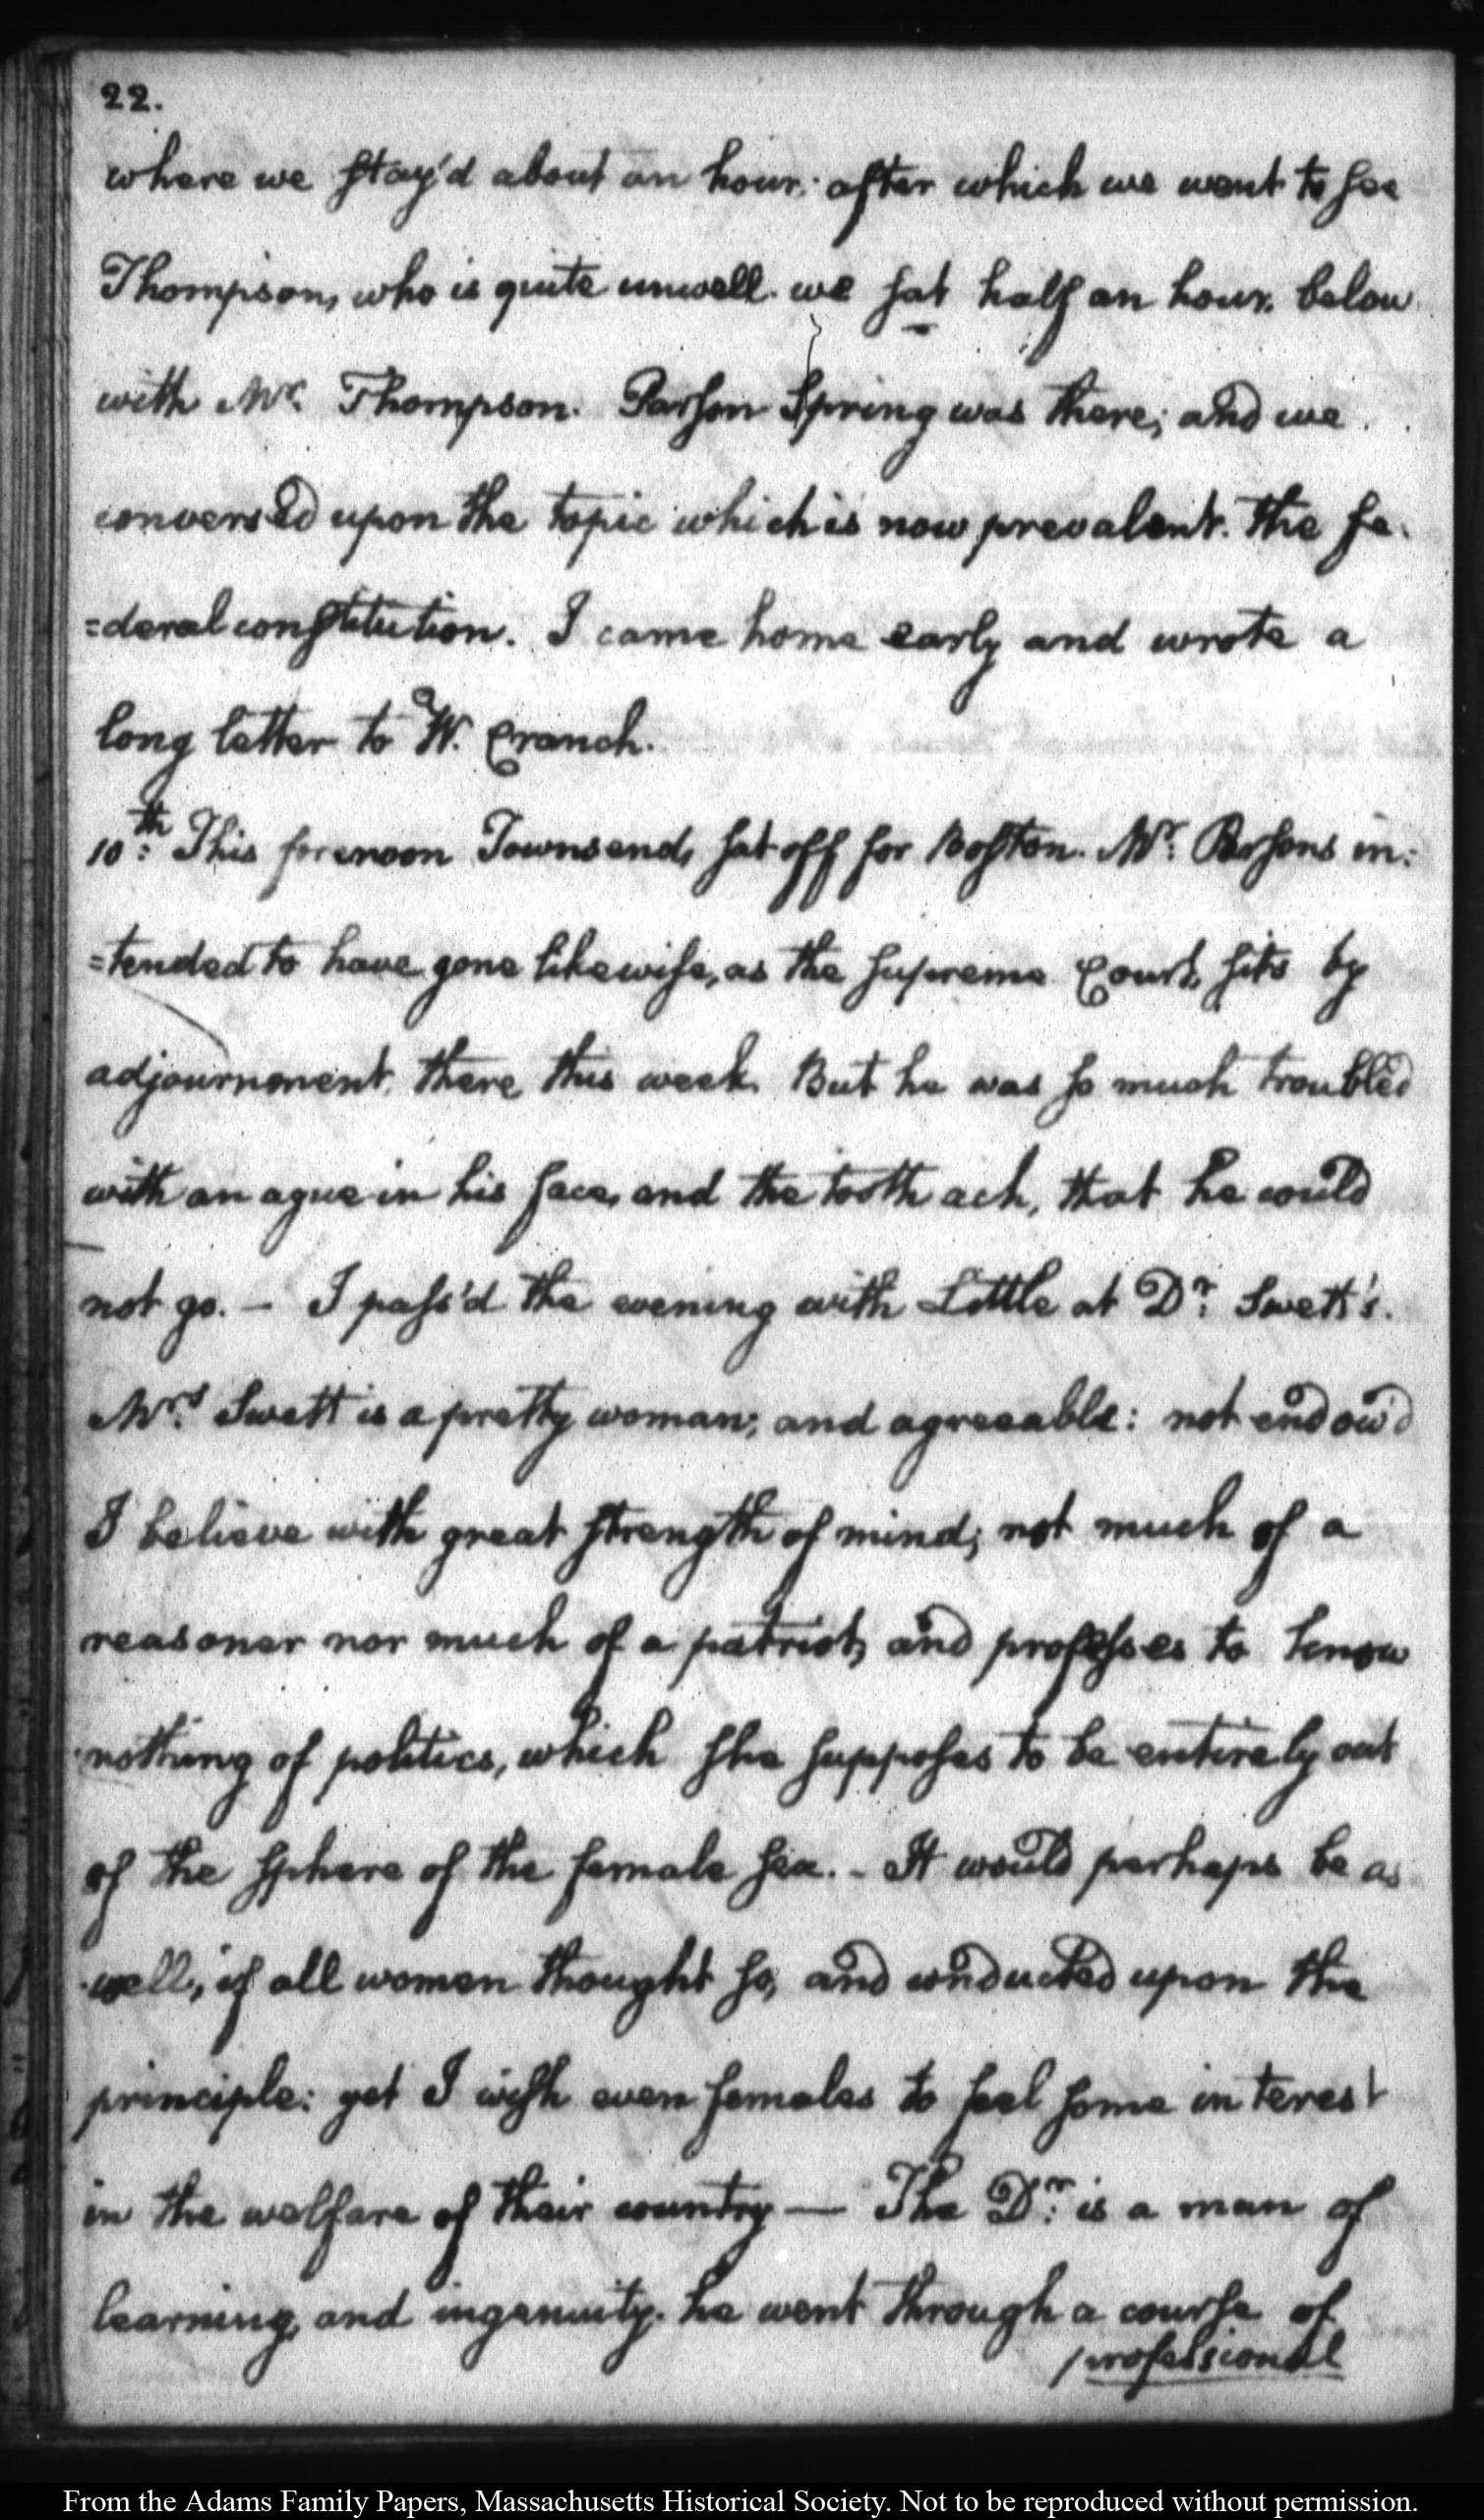 22.
where we stay'd about an hour: after which we went to see
Thompson, who is quite unwell. we sat half an hour, below
with Mr. Thompson. Parson Spring was there; and we
conversed upon the topic which is now prevalent. the fe-
=deral constitution. I came home early and wrote a
long letter to W. Cranch.
10th: This forenoon Townsend, sat off for Boston. Mr: Parsons in:
=tended to have gone likewise, as the supreme Court, sits by
adjournment, there this week. But he was so much troubled
with an ague in his face, and the tooth ach, that he could
not go. — I pass'd the evening with Little at Dr: Swett's.
Mrs: Swett is a pretty woman; and agreeable: not endow'd
I believe with great strength of mind; not much of a
reasoner nor much of a patriot, and professes to know
nothing of politics, which she supposes to be entirely out
of the sphere of the female sex. - It would perhaps be as
well, if all women thought so, and conducted upon the
principle: yet I wish even females to feel some interest
in the welfare of their country — The Dr: is a man of
learning, and ingenuity. he went through a course of
professional
From the Adams Family Papers, Massachusetts Historical Society. Not to be reproduced without permission.